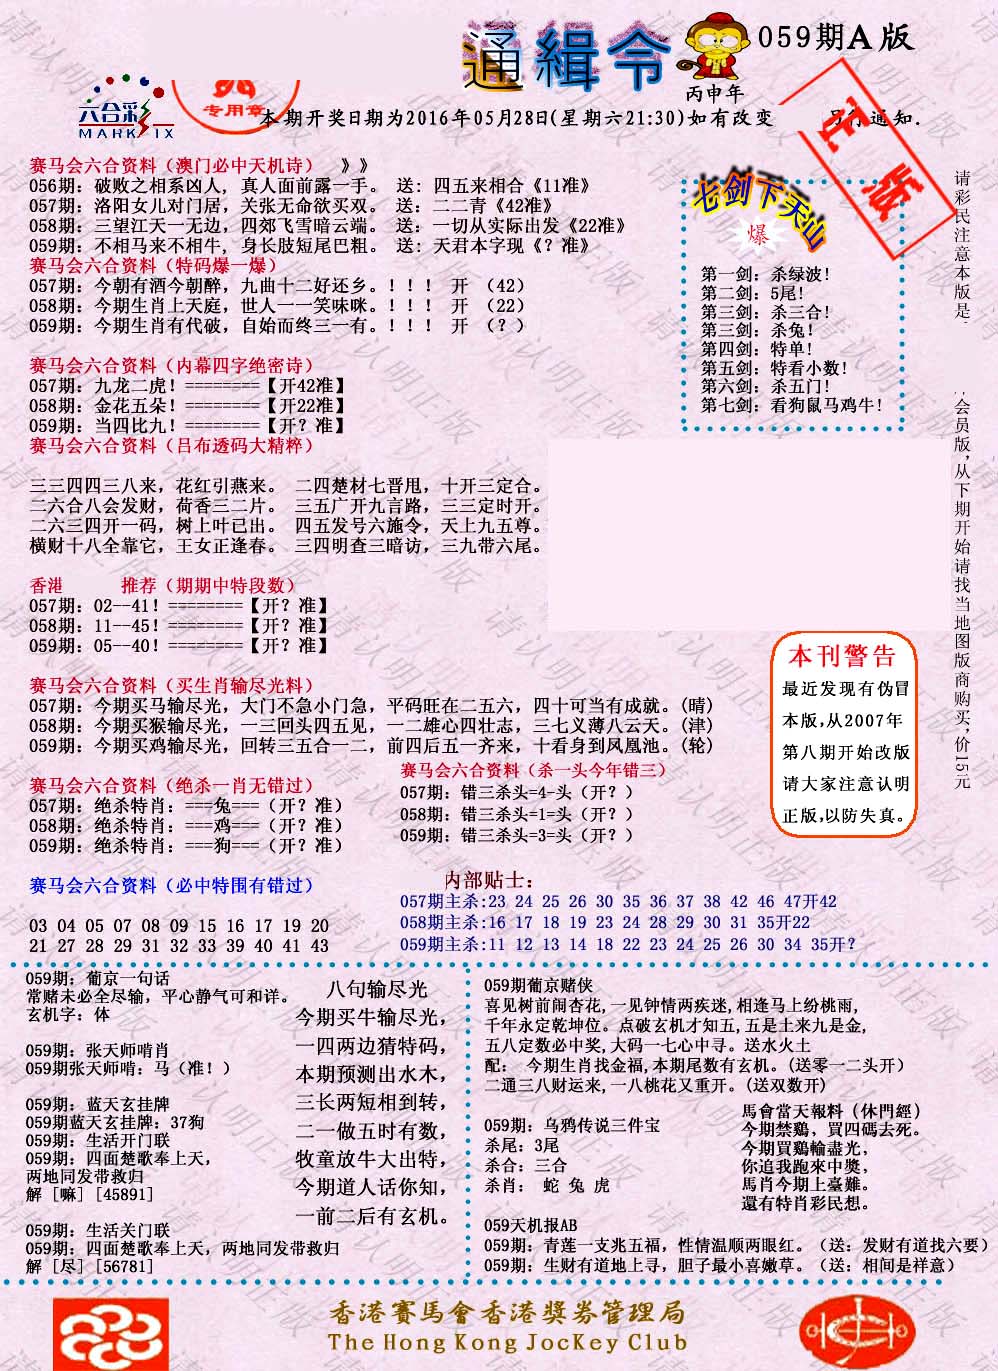 通緝令
059期A版
丙申年
六合彩
MARK SIX
专用章
本期开奖日期为2016年05月28日(星期六21:30)如有改变 另行通知.
赛马会六合资料（澳门必中天机诗） 》》
056期: 破败之相系凶人, 真人面前露一手。 送: 四五来相合《11准》
057期: 洛阳女儿对门居, 关张无命欲买双。 送: 二二青《42准》
058期: 三望江天一无边, 四郊飞雪暗云端。 送: 一切从实际出发《22准》
059期: 不相马来不相牛, 身长肢短尾巴粗。 送: 天君本字现《? 准》
赛马会六合资料（特码爆一爆）
057期: 今朝有酒今朝醉, 九曲十二好还乡。！！！ 开 （42）
058期: 今期生肖上天庭, 世人一一笑咪咪。！！！ 开 （22）
059期: 今期生肖有代破, 自始而终三一有。！！！ 开 （? ）
赛马会六合资料（内幕四字绝密诗）
057期: 九龙二虎! ========【开42准】
058期: 金花五朵! ========【开22准】
059期: 当四比九! ========【开? 准】
赛马会六合资料（吕布透码大精粹）
三三四四三八来, 花红引燕来。 二四楚材七晋用, 十开三定合。
二六合八会发财, 荷香三二片。 三五广开九言路, 三三定时开。
二六三四开一码, 树上叶已出。 四五发号六施令, 天上九五尊。
横财十八全靠它, 王女正逢春。 三四明查三暗访, 三九带六尾。
香港 推荐（期期中特段数）
057期: 02--41! ========【开? 准】
058期: 11--45! ========【开? 准】
059期: 05--40! ========【开? 准】
赛马会六合资料（买生肖输尽光料）
057期: 今期买马输尽光, 大门不急小门急, 平码旺在二五六, 四十可当有成就。(晴)
058期: 今期买猴输尽光, 一三回头四五见, 一二雄心四壮志, 三七义薄八云天。(津)
059期: 今期买鸡输尽光, 回转三五合一二, 前四后五一齐来, 十看身到凤凰池。(轮)
赛马会六合资料（绝杀一肖无错过）
057期: 绝杀特肖: ===兔===（开? 准）
058期: 绝杀特肖: ===鸡===（开? 准）
059期: 绝杀特肖: ===狗===（开? 准）
赛马会六合资料（杀一头今年错三）
057期: 错三杀头=4-头（开? ）
058期: 错三杀头=1=头（开? ）
059期: 错三杀头=3=头（开? ）
赛马会六合资料（必中特围有错过）
03 04 05 07 08 09 15 16 17 19 20
21 27 28 29 31 32 33 39 40 41 43
内部贴士:
057期主杀:23 24 25 26 30 35 36 37 38 42 46 47开42
058期主杀:16 17 18 19 23 24 28 29 30 31 35开22
059期主杀:11 12 13 14 18 22 23 24 25 26 30 34 35开?
七剑下天山
爆
第一剑: 杀绿波!
第二剑: 5尾!
第三剑: 杀三合!
第三剑: 杀兔!
第四剑: 特单!
第五剑: 特看小数!
第六剑: 杀五门!
第七剑: 看狗鼠马鸡牛!
正版
请彩民注意本版是
会员版,从下期开始请找当地图版商购买,价15元
本刊警告
最近发现有伪冒
本版,从2007年
第八期开始改版
请大家注意认明
正版,以防失真。
059期: 葡京一句话
常赌未必全尽输, 平心静气可和详。
玄机字: 体
059期: 张天师啃肖
059期张天师啃: 马（准! ）
059期: 蓝天玄挂牌
059期蓝天玄挂牌: 37狗
059期: 生活开门联
059期: 四面楚歌奉上天,
两地同发带救归
解 [嘛] [45891]
059期: 生活关门联
059期: 四面楚歌奉上天, 两地同发带救归
解 [尽] [56781]
八句输尽光
今期买牛输尽光,
一四两边猜特码,
本期预测出水木,
三长两短相到转,
二一做五时有数,
牧童放牛大出特,
今期道人话你知,
一前二后有玄机。
059期葡京赌侠
喜见树前闹杏花, 一见钟情两疾迷, 相逢马上纷桃雨,
千年永定乾坤位。点破玄机才知五, 五是土来九是金,
五八定数必中奖, 大码一七心中寻。送水火土
配: 今期生肖找金福, 本期尾数有玄机。(送零一二头开)
二通三八财运来, 一八桃花又重开。(送双数开)
059期: 乌鸦传说三件宝
杀尾: 3尾
杀合: 三合
杀肖: 蛇 兔 虎
馬會當天報料（休門經）
今期禁鷄, 買四碼去死。
今期買鷄輸盡光,
你追我跑來中獎,
馬肖今期上臺難。
還有特肖彩民想。
059天机报AB
059期: 青莲一支兆五福, 性情温顺两眼红。（送: 发财有道找六要）
059期: 生财有道地上寻, 胆子最小喜嫩草。（送: 相间是祥意）
香港賽馬會香港獎券管理局
The Hong Kong JocKey Club